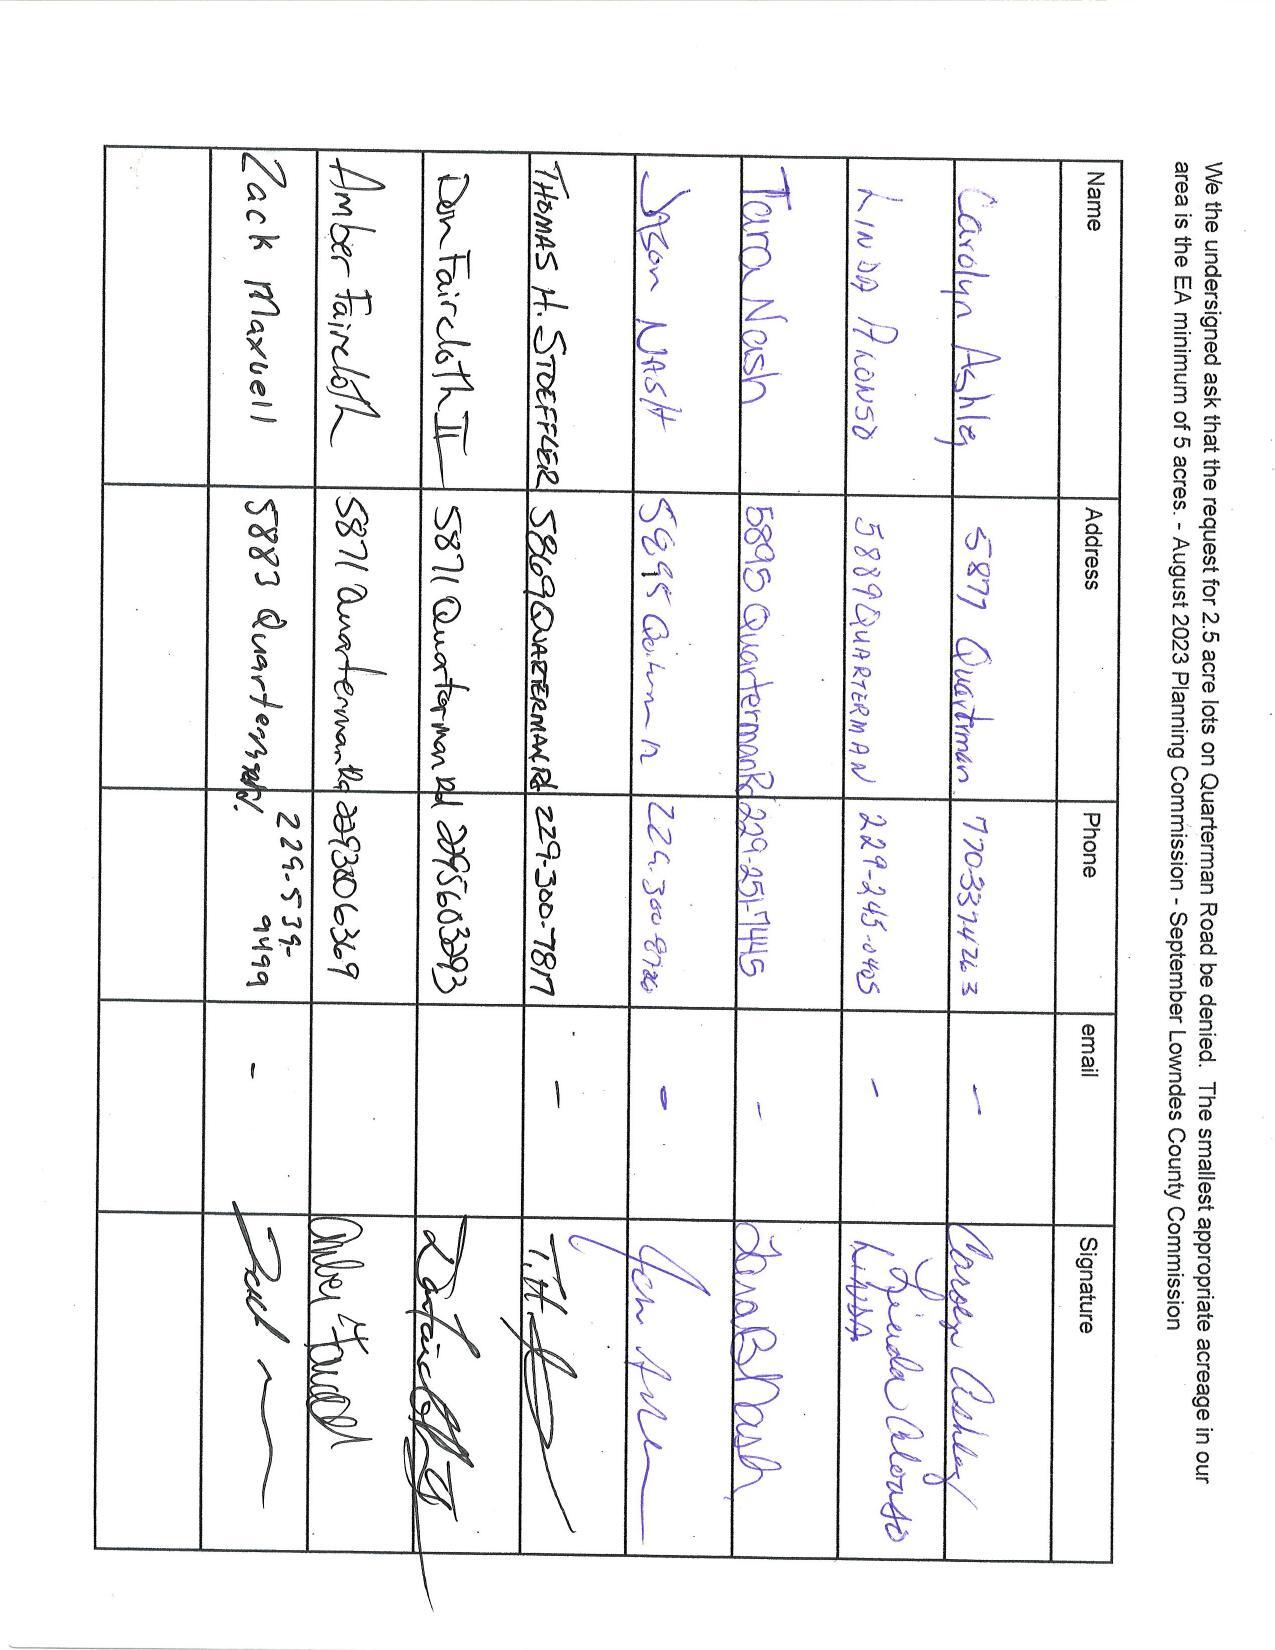 We the undersigned ask that the request for 2.5 acre lots on Quarterman Road be denied. The smallest appropriate acreage in our
area is the EA minimum of 5 acres. - August 2023 Planning Commission - September Lowndes County Commission
Name Address Phone email Signature
Carolyn Ashley 5877 Quarterman 770-337-4263 - Carolyn Ashley
LINDA ALONSO 5889 QUARTERMAN 229-245-0405 - Lienda Alonso
LINDA
Tara Nash 5895 Quarterman Rd 229-251-7445 - Tara B Nash
JASON NASH 5895 229-300-8726 -
THOMAS H. STOEFFLER 5869 QUARTERMAN Rd 229-300-7817 - T.H.
Don Faircloth II 5871 Quarterman Rd 2295603293 Don Faircloth II
Amber Faircloth 5871 Quarterman Rd 2293006369 Amber Faircloth
Zack Maxwell 5883 Quarterman 229-539-
9499 -